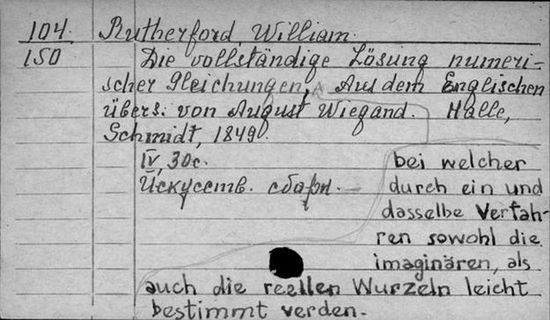 104. Rutherford, William.
150 Die vollständige Lösung numeri-
scher Gleichungen, Aus dem Englischen
übers. von August Wiegand. Halle,
Schmidt, 1849.
IV, 30c.
Искусств. сбарп.
bei welcher
durch ein und
dasselbe Verfah-
ren sowohl die
imaginären, als
auch die reellen Wurzeln leicht
bestimmt verden.